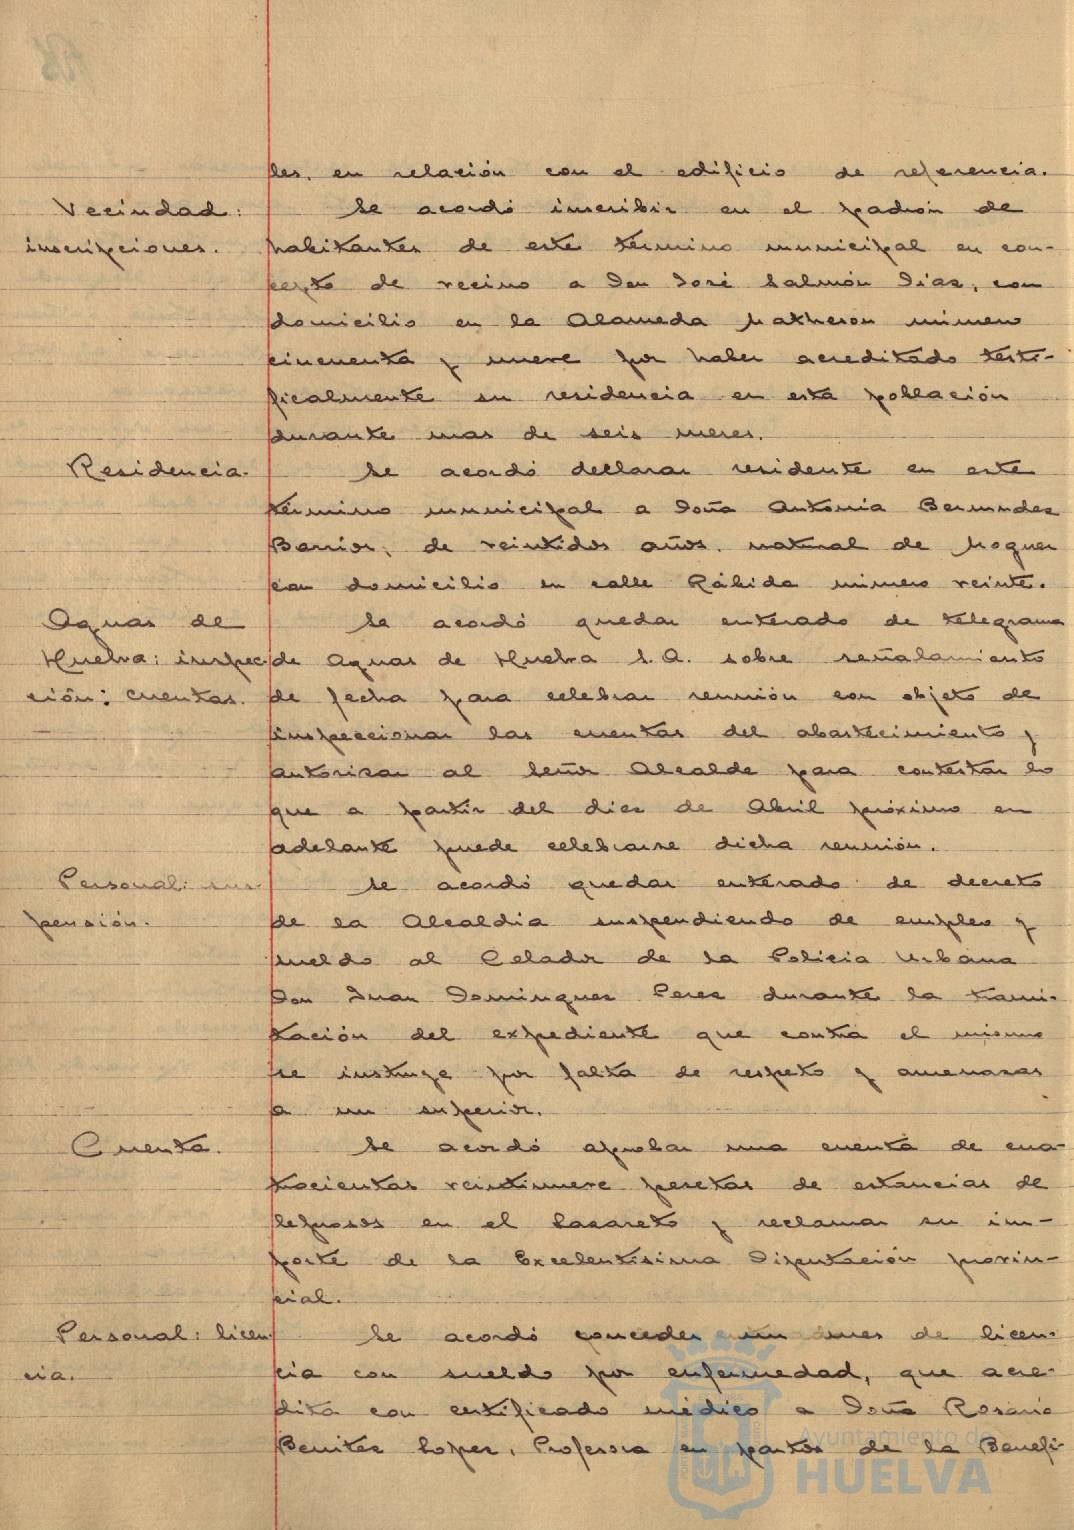 les, en relación con el edificio de referencia.
Vecindad:
inscripciones.
Se acordó inscribir en el padrón de
habitantes de este término municipal en con-
cepto de vecino a Don José Salmón Díaz, con
domicilio en la Alameda Matheson número
cincuenta y nueve por haber acreditado testi-
ficalmente su residencia en esta población
durante mas de seis meses.
Residencia.
Se acordó declarar residente en este
término municipal a Doña Antonia Bermudez
Barrios, de veintidos años, natural de Moguer
con domicilio en calle Rábida número veinte.
Aguas de
Huelva: inspec-
ción: cuentas.
Se acordó quedar enterado de telegrama
de Aguas de Huelva S.A. sobre señalamiento
de fecha para celebrar reunión con objeto de
inspeccionar las cuentas del abastecimiento y
autorizar al Señor Alcalde para contestar lo
que a partir del diez de Abril próximo en
adelante puede celebrarse dicha reunión.
Personal: sus-
pensión.
Se acordó quedar enterado de decreto
de la Alcaldía suspendiendo de empleo y
sueldo al Celador de la Policia Urbana
Don Juan Dominguez Perez durante la trami-
tación del expediente que contra el mismo
se instruye por falta de respeto y amenazas
a un superior.
Cuenta.
Se acordó aprobar una cuenta de cua-
trocientas veintinueve pesetas de estancias de
leprosos en el Lazareto y reclamar su im-
porte de la Excelentísima Diputación provin-
cial.
Personal: licen-
cia.
Se acordó conceder un mes de licen-
cia con sueldo por enfermedad, que acre-
dita con certificado médico a Doña Rosario
Benitez Lopez, Profesora en partos de la Benefi-
Ayuntamiento de
HUELVA